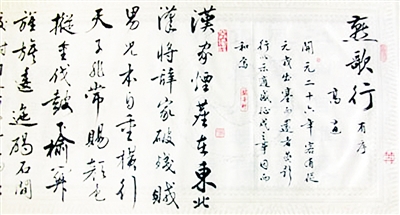 燕歌行 有序
高適
開元二十六年客有從
元戎出塞而還者
行以示適感征戍之事因而
和焉
漢家煙塵在東北
漢將辭家破殘賊
男兒本自重橫行
天子非常賜顏色
摐金伐鼓下榆關
旌旆逶迤碣石間